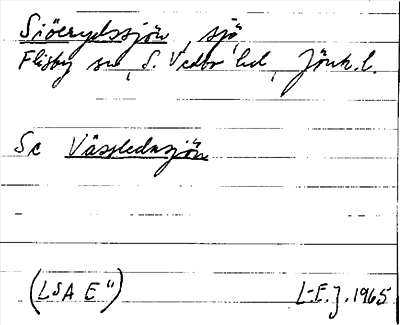 Siöerydssjön, sjö,
Flisby sn, S. Vedbo hd, Jönk.l.
Se Vässledasjön
(LSA E")
L-E.J. 1965